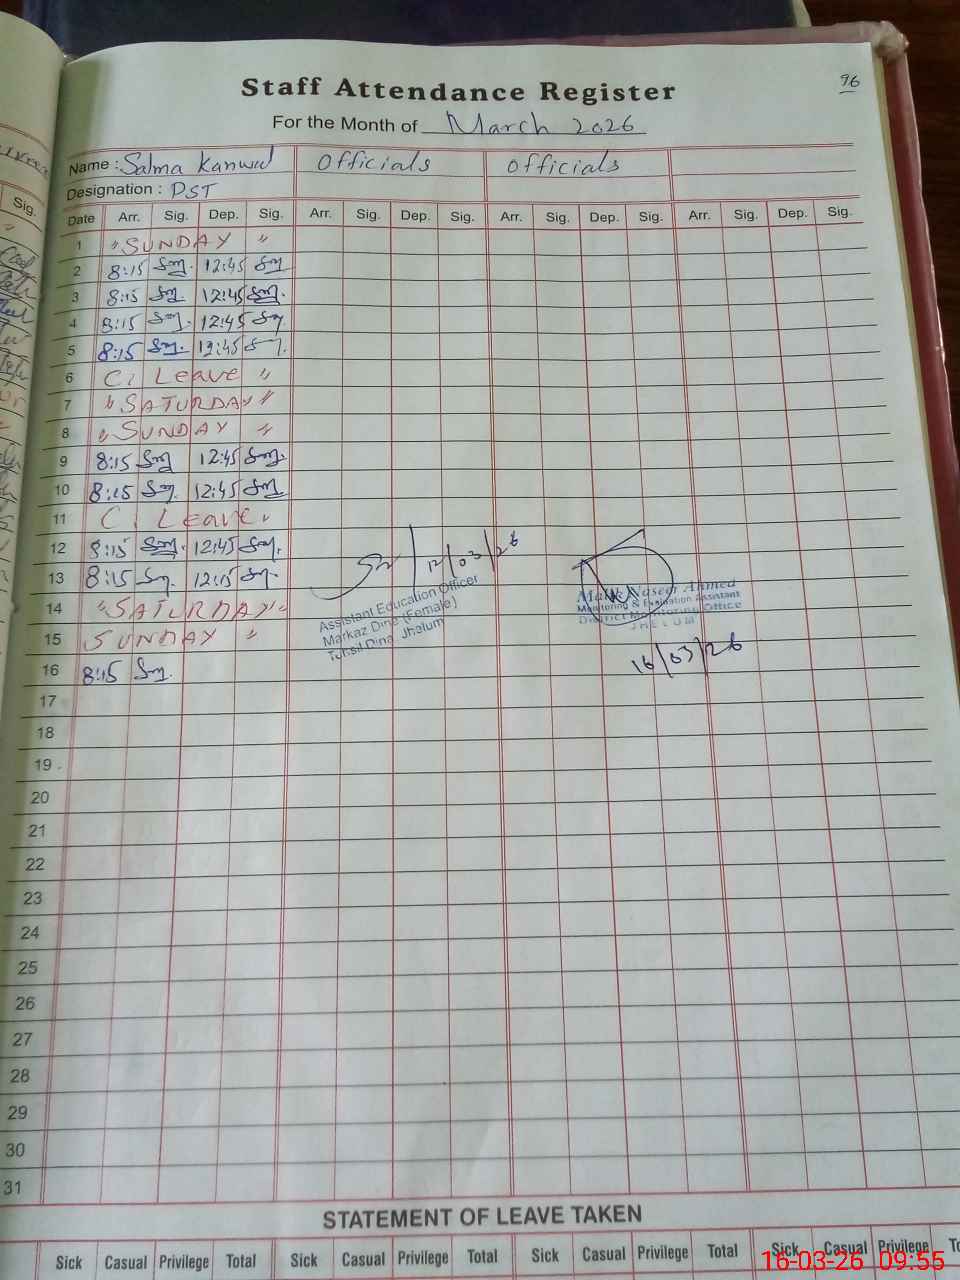 96
Staff Attendance Register
For the Month of March 2026
Name : Salma Kanwal Officials Officials
Designation : PST
Date Arr. Sig. Dep. Sig. Arr. Sig. Dep. Sig. Arr. Sig. Dep. Sig. Arr. Sig. Dep. Sig.
1 " SUNDAY "
2 8:15 12:45
3 8:15 12:45
4 8:15 12:45
5 8:15 12:45
6 C. Leave "
7 " SATURDAY "
8 " SUNDAY "
9 8:15 12:45
10 8:15 12:45
11 C. Leave.
12 8:15 12:45
13 8:15 12:15
14 " SATURDAY "
15 SUNDAY "
16 8:15
12/03/26
Assistant Education Officer
Markaz Dina (Female)
Tehsil Dina, Jhelum
Malik Naseer Ahmed
Monitoring & Evaluation Assistant
District Monitoring Office
JHELUM
16/03/26
17
18
19
20
21
22
23
24
25
26
27
28
29
30
31
STATEMENT OF LEAVE TAKEN
Sick Casual Privilege Total Sick Casual Privilege Total Sick Casual Privilege Total Sick Casual Privilege
16-03-26 09:55
Sig.